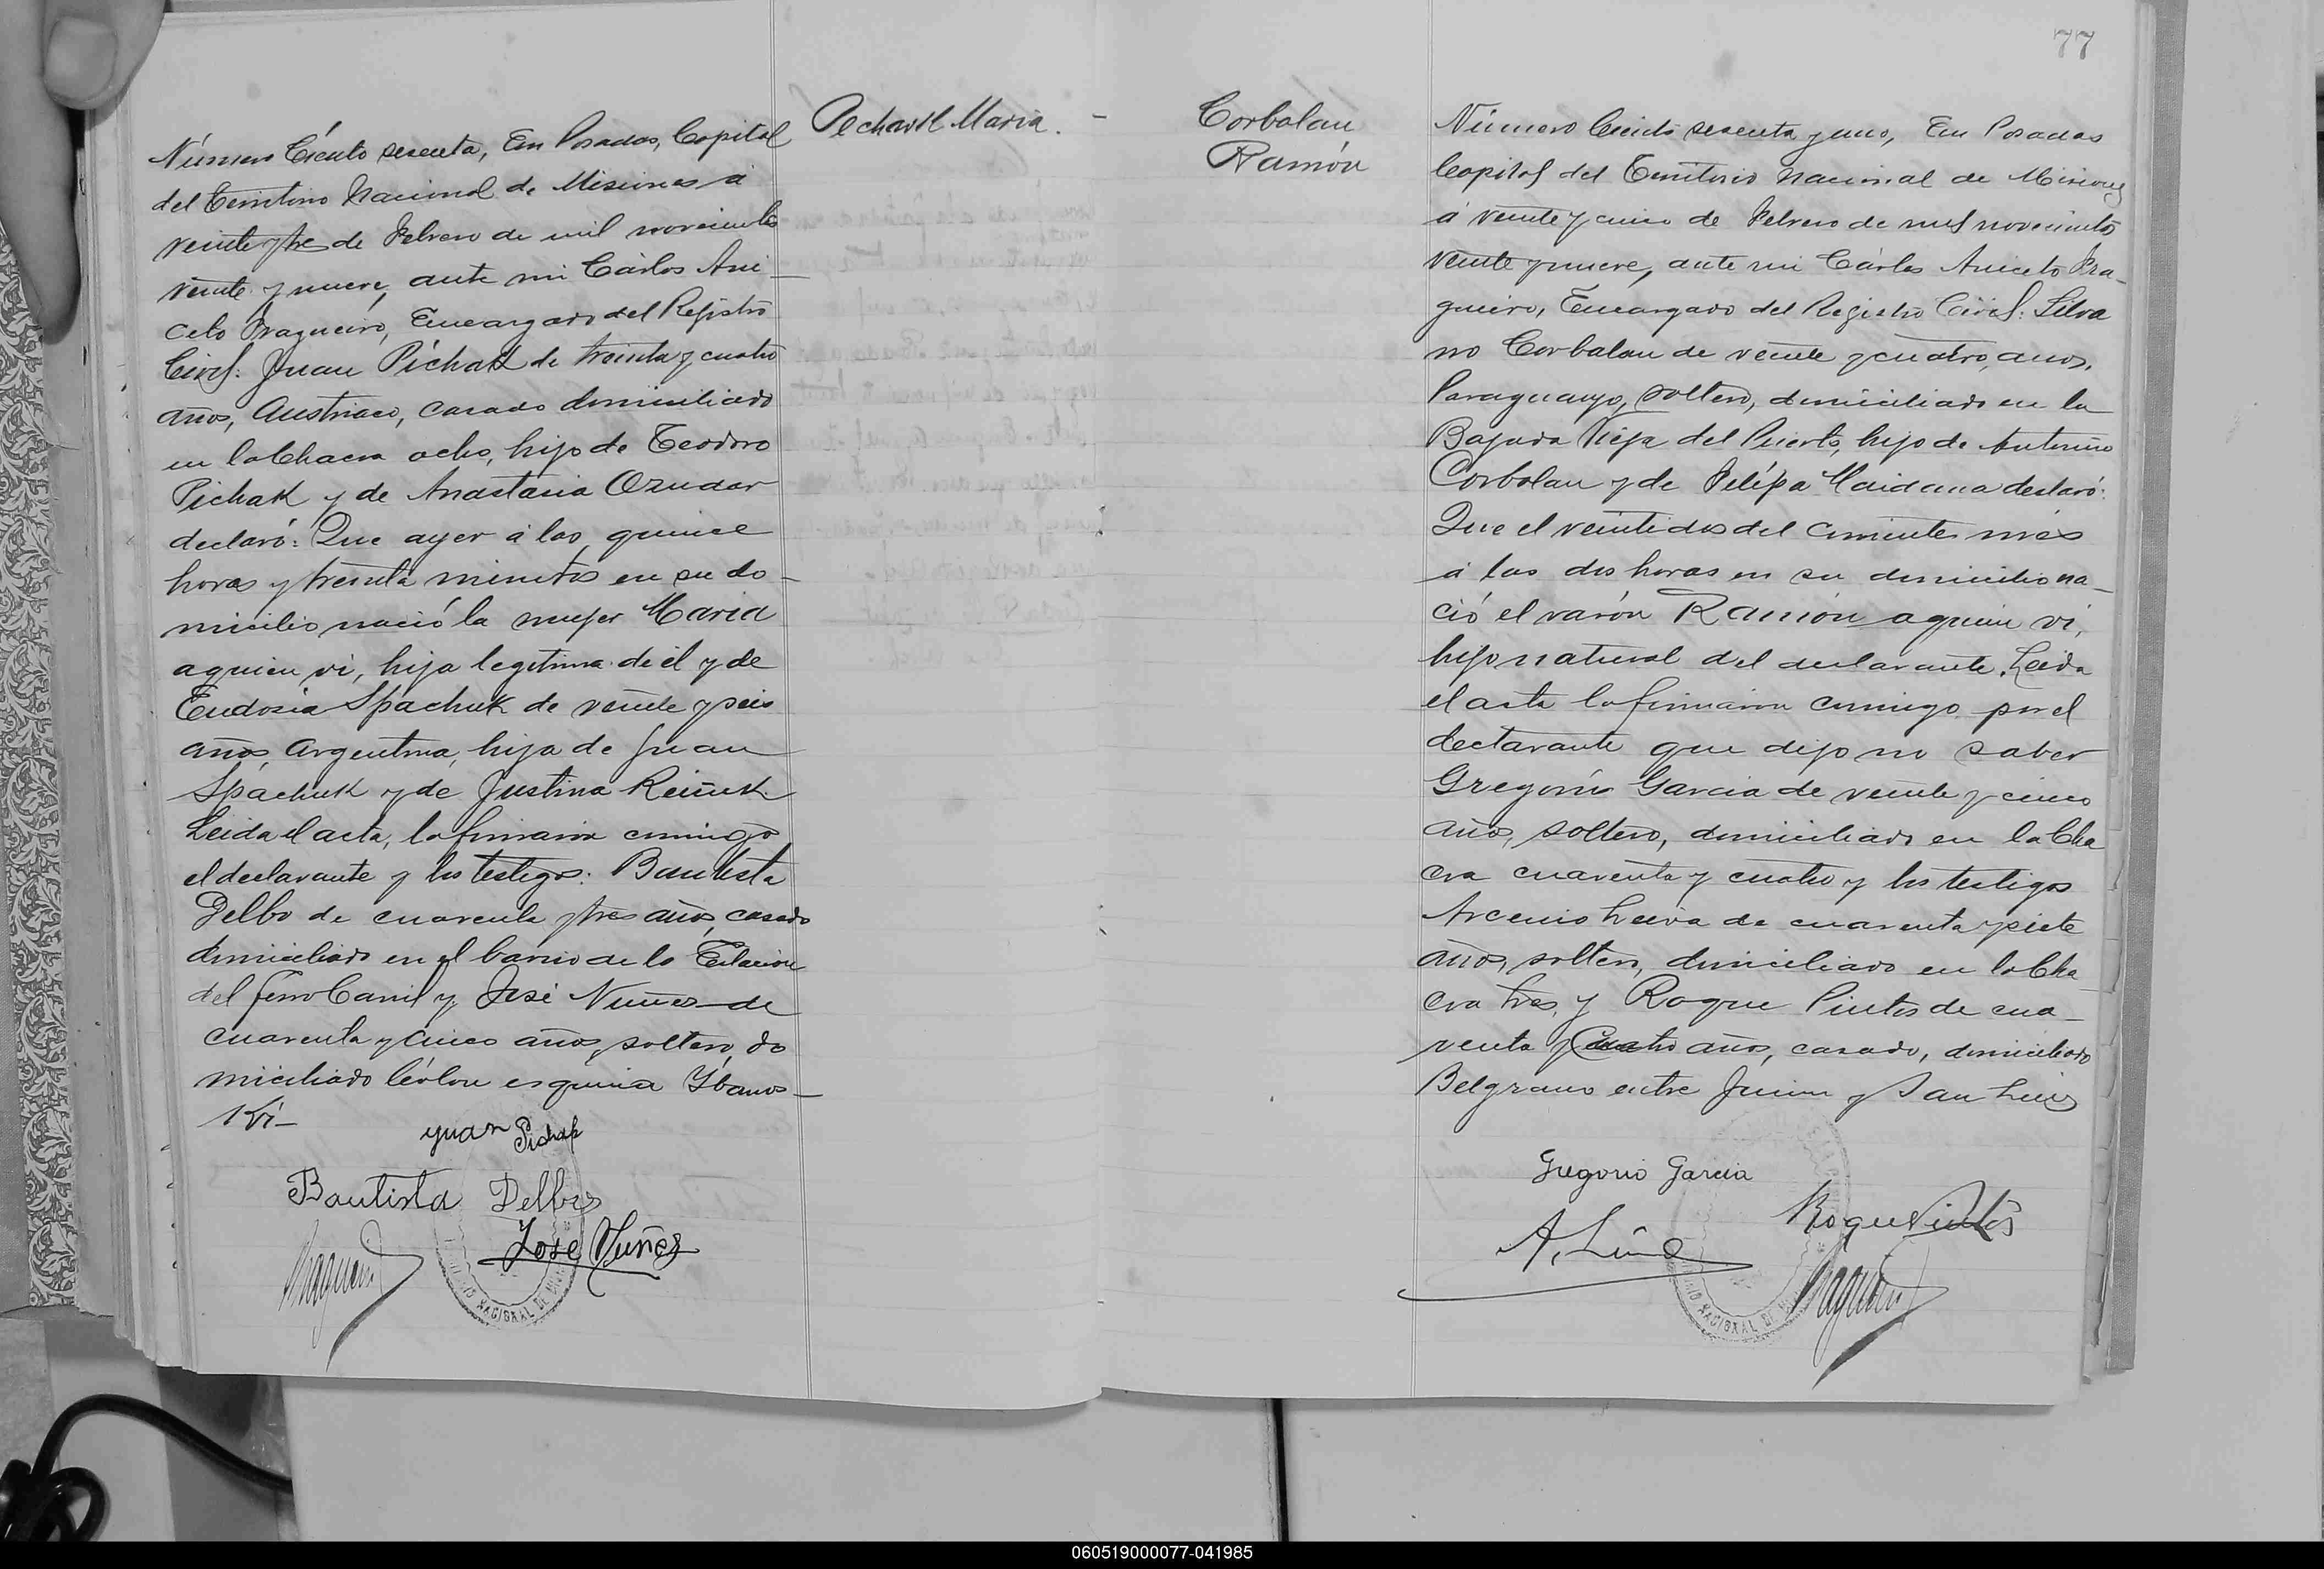 Pechavk Maria. -
Número Ciento sesenta, En Posadas, Capital
del Territorio Nacional de Misiones á
veinte y tres de Febrero de mil novecientos
veinte y nueve, ante mi Cárlos Ani-
ceto Fragueiro, Encargado del Registro
Civil: Juan Pichak de treinta y cuatro
años, Austriaco, casado domiciliado
en la Chacra ocho, hijo de Teodoro
Pichak y de Anastasia Ozudar
declaró: Que ayer á las quince
horas y treinta minutos en su do-
micilio nació la mujer Maria
a quien vi, hija legitima de él y de
Eudosia Spachuk de veinte y seis
años, Argentina, hija de Juan
Spachuk y de Justina
Leida el acta, la firmaron conmigo
el declarante y los testigos: Bautista
Delbo de cuarenta y tres años, casado
domiciliado en el barrio de la Estacion
del ferro Carril y José Nuñez de
cuarenta y cinco años, soltero, do
miciliado Cólon esquina Ybanos-
Ki-
Juan Pichak
Bautista Delbo
José Nuñez
Fragueiro
NACIONAL DE
77
Corbalan
Ramón
Número Ciento sesenta y uno, En Posadas
Capital del Territorio Nacional de Misiones
á veinte y cinco de Febrero de mil novecientos
veinte y nueve, ante mi Cárlos Aniceto Fra-
gueiro, Encargado del Registro Civil: Silva
no Corbalan de veinte y cuatro, anos,
Paraguayo, soltero, domiciliado en la
Bajada Vieja del Puerto, hijo de Antonio
Corbalan y de Felipa Maidana declaró:
Que el veintidos del corriente mes
á las dos horas en su domicilio na-
ció el varón Ramón a quien vi,
hijo natural del declarante. Leida
el acta la firmaron conmigo por el
declarante que dijo no saber
Gregorio Garcia de veinte y cinco
años, soltero, domiciliado en la Cha
cra cuarenta y cuatro y los testigos
Arcenio Leiva de cuarenta y siete
años, soltero, domiciliado en la Cha
cra tres, y Roque Pintos de cua-
renta y Cuatro años, casado, domiciliado
Belgrano entre Junin y San Luis
Gregorio Garcia
A. Roque Pintos
Fragueiro
NACIONAL DE
060519000077-041985